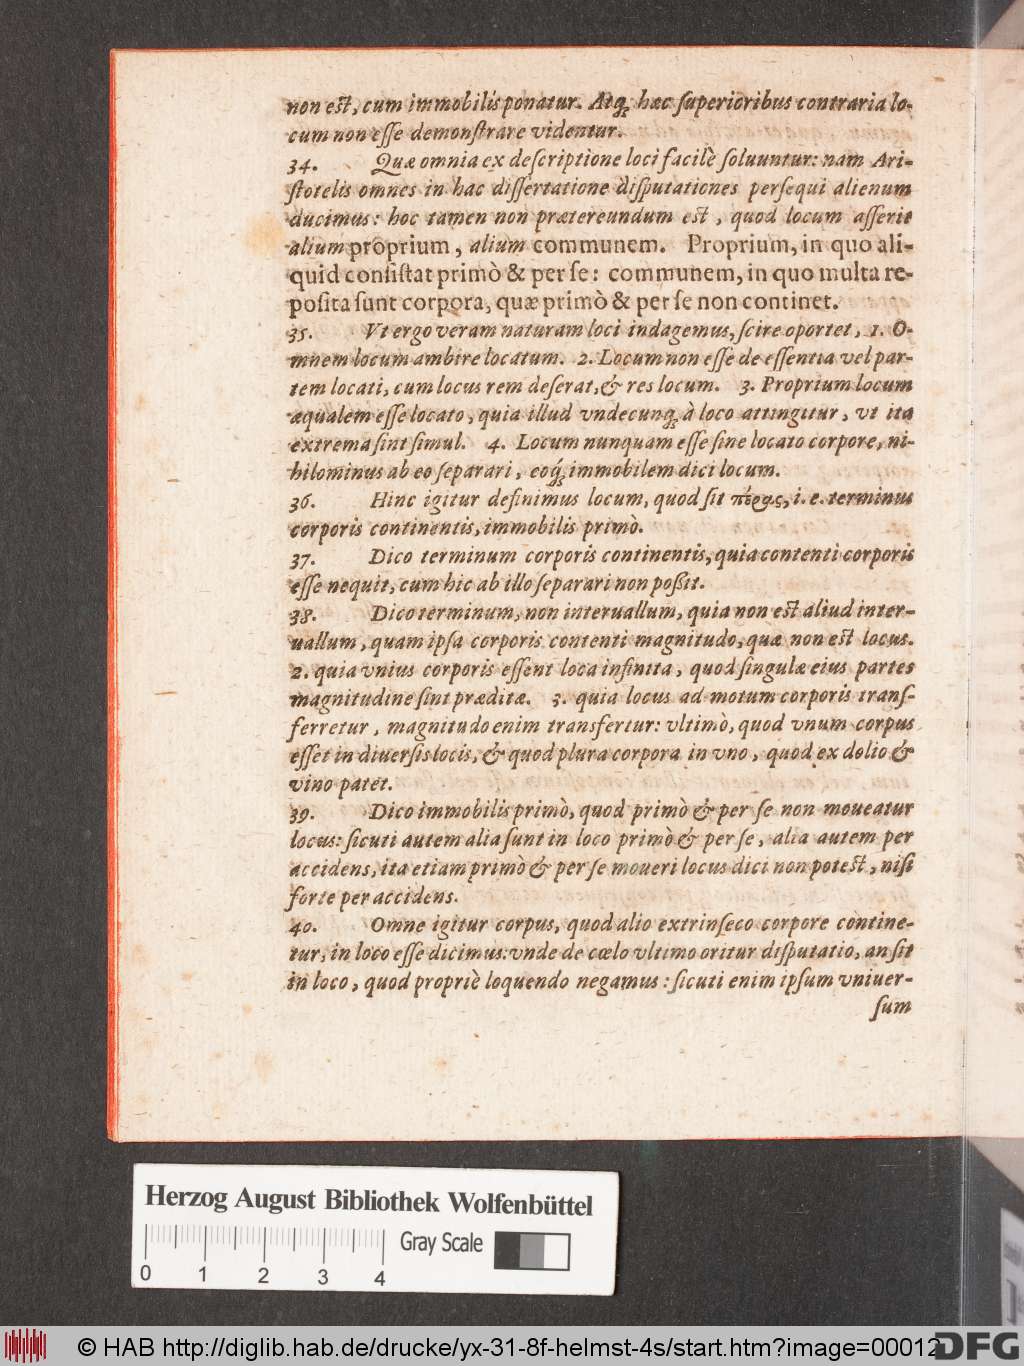 non est, cum immobilis ponatur. Atq; hæc superioribus contraria lo-
cum non esse demonstrare videntur.
34. Quæ omnia ex descriptione loci facilè soluuntur: nam Ari-
stotelis omnes in hac dissertatione disputationes persequi alienum
ducimus: hoc tamen non prætereundum est, quod locum asserit
alium proprium, alium communem. Proprium, in quo ali-
quid consistat primò & per se: communem, in quo multa re-
posita sunt corpora, quæ primò & per se non continet.
35. Vt ergo veram naturam loci indagemus, scire oportet, 1. O-
mnem locum ambire locatum. 2. Locum non esse de essentia vel par-
tem locati, cum locus rem deserat, & res locum. 3. Proprium locum
æqualem esse locato, quia illud vndecunq; à loco attingitur, vt ita
extrema sint simul. 4. Locum nunquam esse sine locato corpore, ni-
hilominus ab eo separari, eoq́; immobilem dici locum.
36. Hinc igitur definimus locum, quod sit πέρας, i. e. terminus
corporis continentis, immobilis primò.
37. Dico terminum corporis continentis, quia contenti corporis
esse nequit, cum hic ab illo separari non poßit.
38. Dico terminum, non interuallum, quia non est aliud inter-
uallum, quam ipsa corporis contenti magnitudo, quæ non est locus.
2. quia vnius corporis essent loca infinita, quod singulæ eius partes
magnitudine sint præditæ. 3. quia locus ad motum corporis trans-
ferretur, magnitudo enim transfertur: vltimò, quod vnum corpus
esset in diuersis locis, & quod plura corpora in vno, quod ex dolio &
vino patet.
39. Dico immobilis primò, quod primò & per se non moueatur
locus: sicuti autem alia sunt in loco primò & per se, alia autem per
accidens, ita etiam primò & per se moueri locus dici non potest, nisi
forte per accidens.
40. Omne igitur corpus, quod alio extrinseco corpore contine-
tur, in loco esse dicimus: vnde de cœlo vltimo oritur disputatio, an sit
in loco, quod propriè loquendo negamus: sicuti enim ipsum vniuer-
sum
Herzog August Bibliothek Wolfenbüttel
Gray Scale
0 1 2 3 4
© HAB http://diglib.hab.de/drucke/yx-31-8f-helmst-4s/start.htm?image=00012
DFG